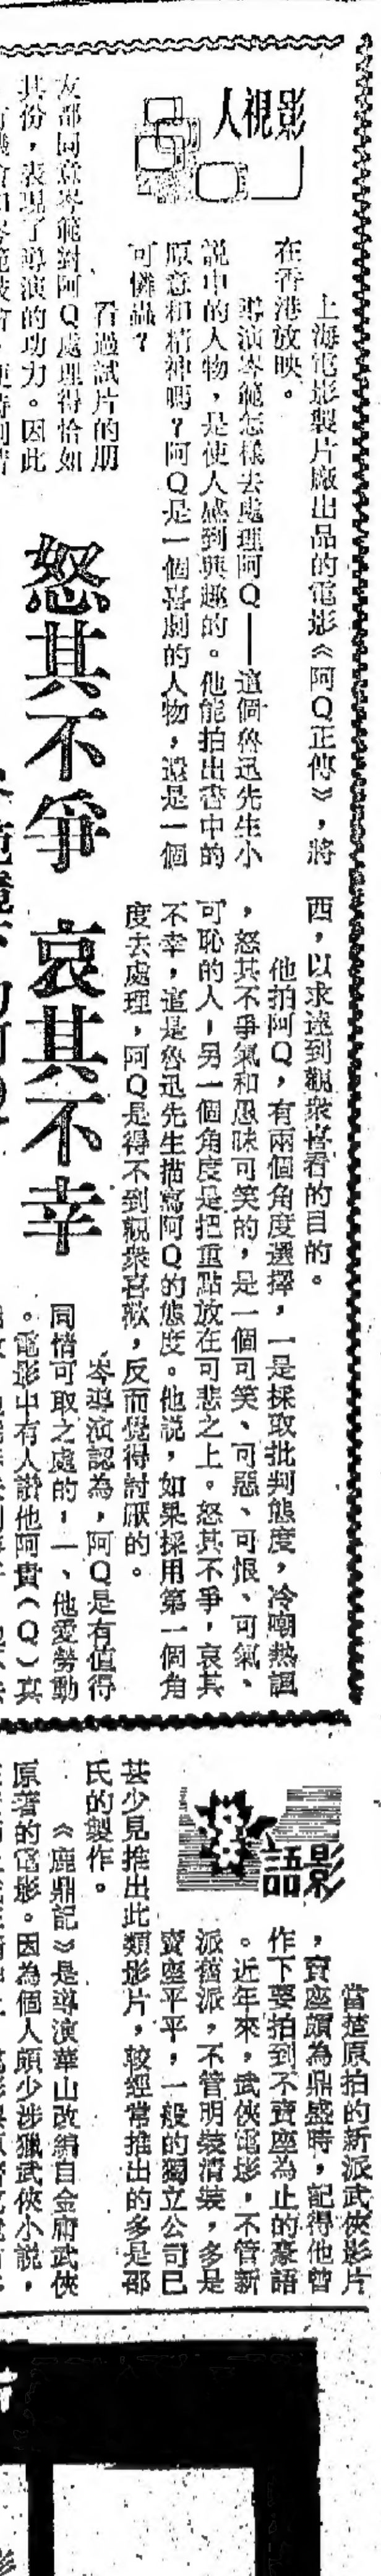 影視人
上海電影製片廠出品的電影《阿Q正傳》，將
在香港放映。
導演岑範怎樣去處理阿Q——這個魯迅先生小
說中的人物，是使人感到興趣的。他能拍出書中的
原意和精神嗎？阿Q是一個喜劇的人物，還是一個
可憐蟲？
看過試片的朋
友都同意岑範對阿Q處理得恰如
其份，表現了導演的功力。因此
怒其不爭 哀其不幸
西，以求達到觀眾喜看的目的。
他拍阿Q，有兩個角度選擇，一是採取批判態度，冷嘲熱諷
，怒其不爭氣和愚昧可笑的，是一個可笑、可惡、可恨、可氣、
可恥的人，另一個角度是把重點放在可悲之上。怒其不爭，哀其
不幸，這是魯迅先生描寫阿Q的態度。他說，如果採用第一個角
度去處理，阿Q是得不到觀眾喜歡，反而覺得討厭的。
岑導演認為，阿Q是有值得
同情可取之處的，一、他愛勞動
。電影中有人讚他阿貴（Q）真
影語
當楚原拍的新派武俠影片
，賣座頗為鼎盛時，記得他曾
作下要拍到不賣座為止的豪語
。近年來，武俠電影，不管新
派舊派，不管明裝清裝，多是
賣座平平，一般的獨立公司已
甚少見推出此類影片，較經常推出的多是邵
氏的製作。
《鹿鼎記》是導演華山改編自金庸武俠
原著的電影。因為個人頗少涉獵武俠小說，